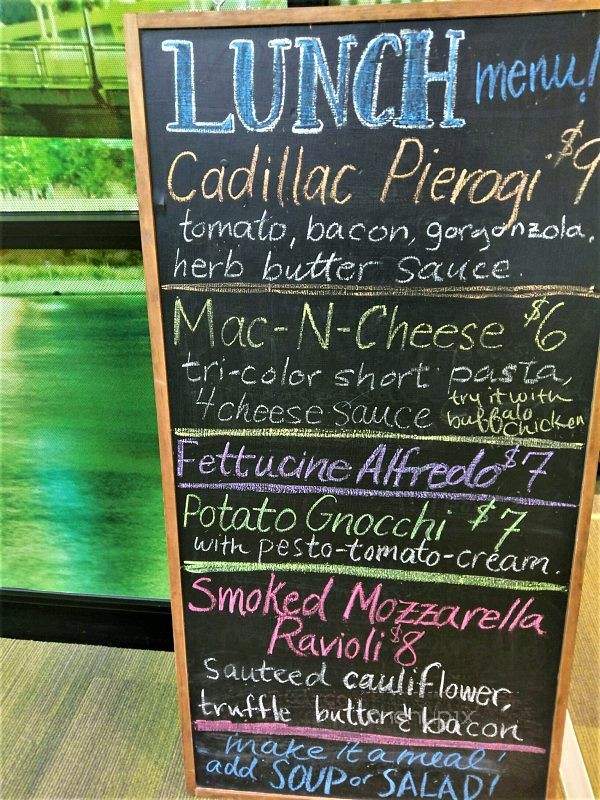 LUNCH menu!
Cadillac Pierogi $9
tomato, bacon, gorgonzola,
herb butter sauce.
Mac-N-Cheese $6
tri-color short pasta,
4 cheese sauce
try it with
buffalo
chicken
Fettucine Alfredo $7
Potato Gnocchi $7
with pesto-tomato-cream.
Smoked Mozzarella
Ravioli $8
Sauteed cauliflower,
truffle butter & bacon
make it a meal!
add SOUP or SALAD!